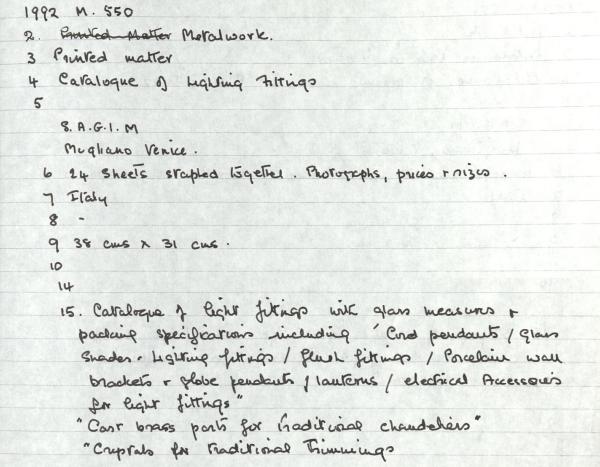 1992 M. 550
2. Printed Matter Metalwork.
3 Printed matter
4 Catalogue of Lighting Fittings
5
S.A.G.I.M
Mogliano Venice.
6 24 sheets stapled together. Photographs, prices + sizes.
7 Italy
8 -
9 38 cms x 31 cms.
10
14
15. Catalogue of light fittings with glass measures +
packing specifications including 'Cord pendants / Glass
Shades. Lighting fittings / flush fittings / Porcelain wall
brackets + globe pendants / lanterns / electrical Accessories
for light fittings"
"Cast brass parts for traditional chandeliers"
"Crystals for traditional Trimmings